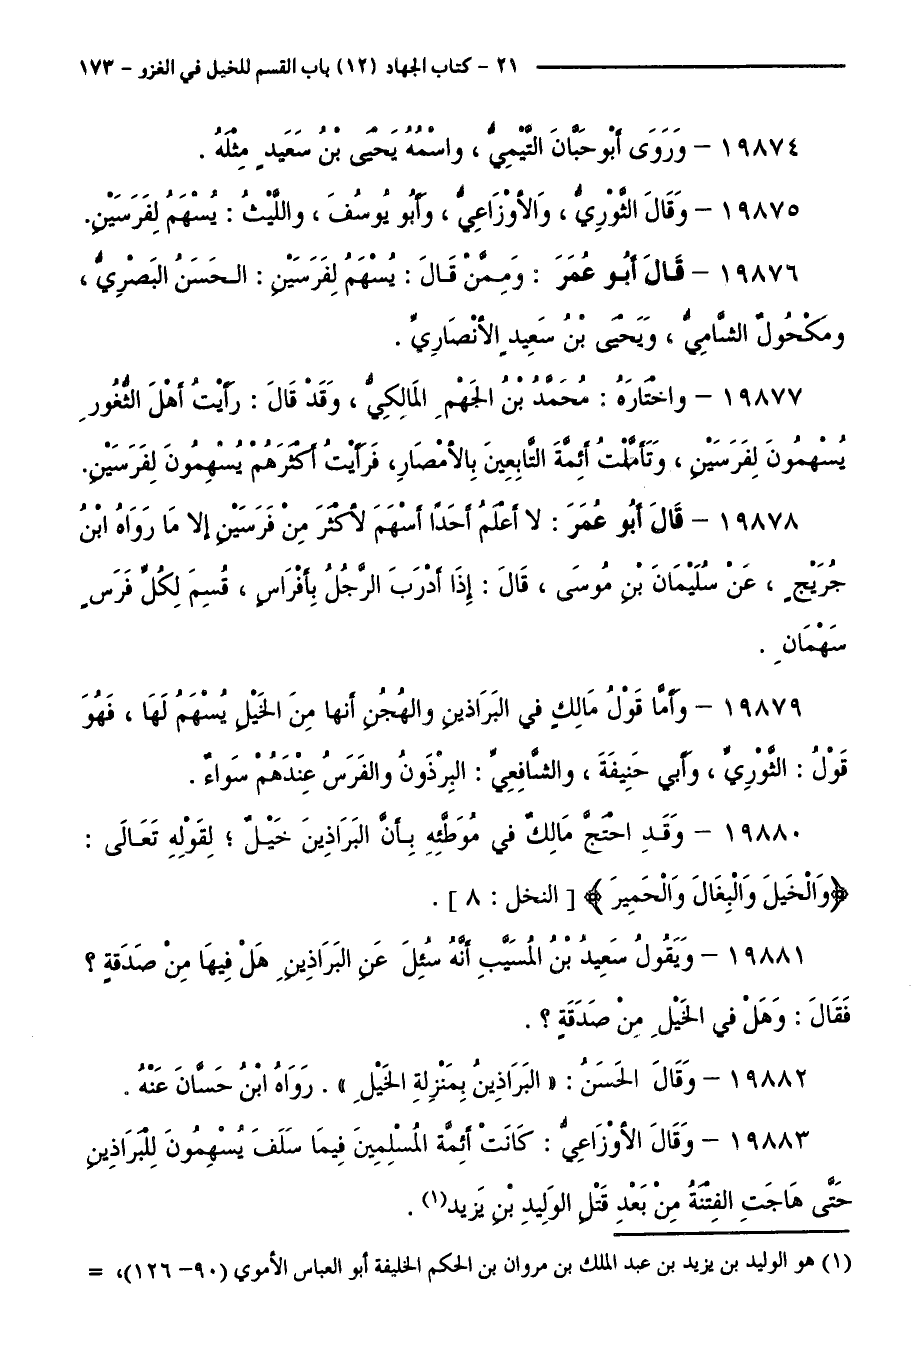 ٢١ - كتاب الجهاد (١٢) باب القسم للخيل في الغزو - ١٧٣
١٩٨٧٤ - وَرَوَى أَبُو حَبَّانَ التَّيْمِيُّ ، واسْمُهُ يَحْيَى بْنُ سَعَيدٍ مِثْلَهُ .
١٩٨٧٥ - وَقَالَ الثَّوْرِيُّ ، وَالأوْزَاعِيُّ ، وَأَبُو يُوسُفَ ، واللَّيْثُ : يُسْهَمُ لِفَرَسَيْنِ.
١٩٨٧٦ - قَالَ أَبُو عُمَرَ : وَمِمَّنْ قَالَ : يُسْهَمُ لِفَرَسَيْنِ : الحَسَنُ البَصْرِيُّ ،
ومَكْحُولٌ الشَّامِيُّ ، وَيَحْيَى بْنُ سَعِيدٍ الأنْصَارِيُّ .
١٩٨٧٧ - واخْتَارَهُ : مُحَمَّدُ بْنُ الجَهْمِ المَالِكِيُّ ، وَقَدْ قَالَ : رَأَيْتُ أهْلَ الثُّغُورِ
يُسْهِمُونَ لِفَرَسَيْنِ ، وَتَأَمَّلْتُ أئِمَّةَ التَّابِعِينَ بِالأمْصَارِ، فَرَأيْتُ أكْثَرَهُمْ يُسْهِمُونَ لِفَرَسَيْنِ.
١٩٨٧٨ - قَالَ أَبُو عُمَرَ : لا أعْلَمُ أحَدًا أسْهَمَ لأكْثَرَ مِنْ فَرَسَيْنِ إلا مَا رَوَاهُ ابْنُ
جُرَيْجٍ ، عَنْ سُلَيْمَانَ بْنِ مُوسَى ، قَالَ : إِذَا أدْرَبَ الرَّجُلُ بِأفْرَاسٍ ، قُسِمَ لِكُلِّ فَرَسٍ
سَهْمَانِ .
١٩٨٧٩ - وَأَمَّا قَوْلُ مَالِكٍ في البَرَاذينِ والهُجُنِ أنها مِنَ الخَيْلِ يُسْهَمُ لَهَا ، فَهُوَ
قَوْلُ : الثَّوْرِيِّ ، وَأَبي حَنِيفَةَ ، والشَّافِعِيِّ : البِرْذَونُ والفَرَسُ عِنْدَهُمْ سَوَاءٌ .
١٩٨٨٠ - وَقَدِ احْتَجَّ مَالِكٌ في مُوَطَّئِهِ بِأَنَّ البَرَاذِينَ خَيْلٌ ؛ لِقَوْلِهِ تَعَالَى :
﴿وَالْخَيْلَ وَالْبِغَالَ وَالْحَمِيرَ ﴾ [ النحل : ٨ ] .
١٩٨٨١ - وَيَقُولُ سَعِيدُ بْنُ المُسَيَّبِ أنَّهُ سُئِلَ عَنِ البَرَاذِينِ هَلْ فِيهَا مِنْ صَدَقةٍ ؟
فَقَالَ : وَهَلْ في الخَيْلِ مِنْ صَدَقَةٍ ؟ .
١٩٨٨٢ - وَقَالَ الحَسَنُ : « البَرَاذِينُ بِمَنْزِلةِ الخَيْلِ » . رَوَاهُ ابْنُ حَسَّانَ عَنْهُ .
١٩٨٨٣ - وَقَالَ الأوْزَاعِيُّ : كَانَتْ أئِمَّة المُسْلِمِينَ فِيمَا سَلَفَ يُسْهِمُونَ لِلْبَرَاذِينِ
حَتَّى هَاجَتِ الفِتْنَةُ مِنْ بَعْدِ قَتْلِ الوَلِيدِ بْنِ يَزِيد(١) .
(١) هو الوليد بن يزيد بن عبد الملك بن مروان بن الحكم الخليفة أبو العباس الأموي (٩٠- ١٢٦)، =